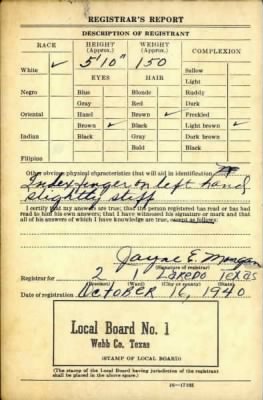 REGISTRAR'S REPORT
DESCRIPTION OF REGISTRANT
RACE HEIGHT (Approx.) WEIGHT (Approx.) COMPLEXION
White ✓ 5'10" 150 Sallow
EYES HAIR Light
Negro Blue Blonde Ruddy
Gray Red Dark
Oriental Hazel Brown ✓ Freckled
Brown ✓ Black Light brown ✓
Indian Black Gray Dark brown
Bald Black
Filipino
Other obvious physical characteristics that will aid in identification
Index finger on left hand
slightly stiff
I certify that my answers are true; that the person registered has read or has had
read to him his own answers; that I have witnessed his signature or mark and that
all of his answers of which I have knowledge are true, except as follows:
Jayne E. Morgan
(Signature of registrar)
Registrar for 2 1 Laredo Texas
(Precinct) (Ward) (City or county) (State)
Date of registration October 16, 1940
Local Board No. 1
Webb Co. Texas
(STAMP OF LOCAL BOARD)
(The stamp of the Local Board having jurisdiction of the registrant
shall be placed in the above space.)